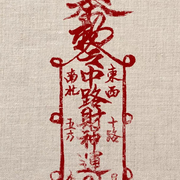 令中路財神運
東西
南北
十路
五方